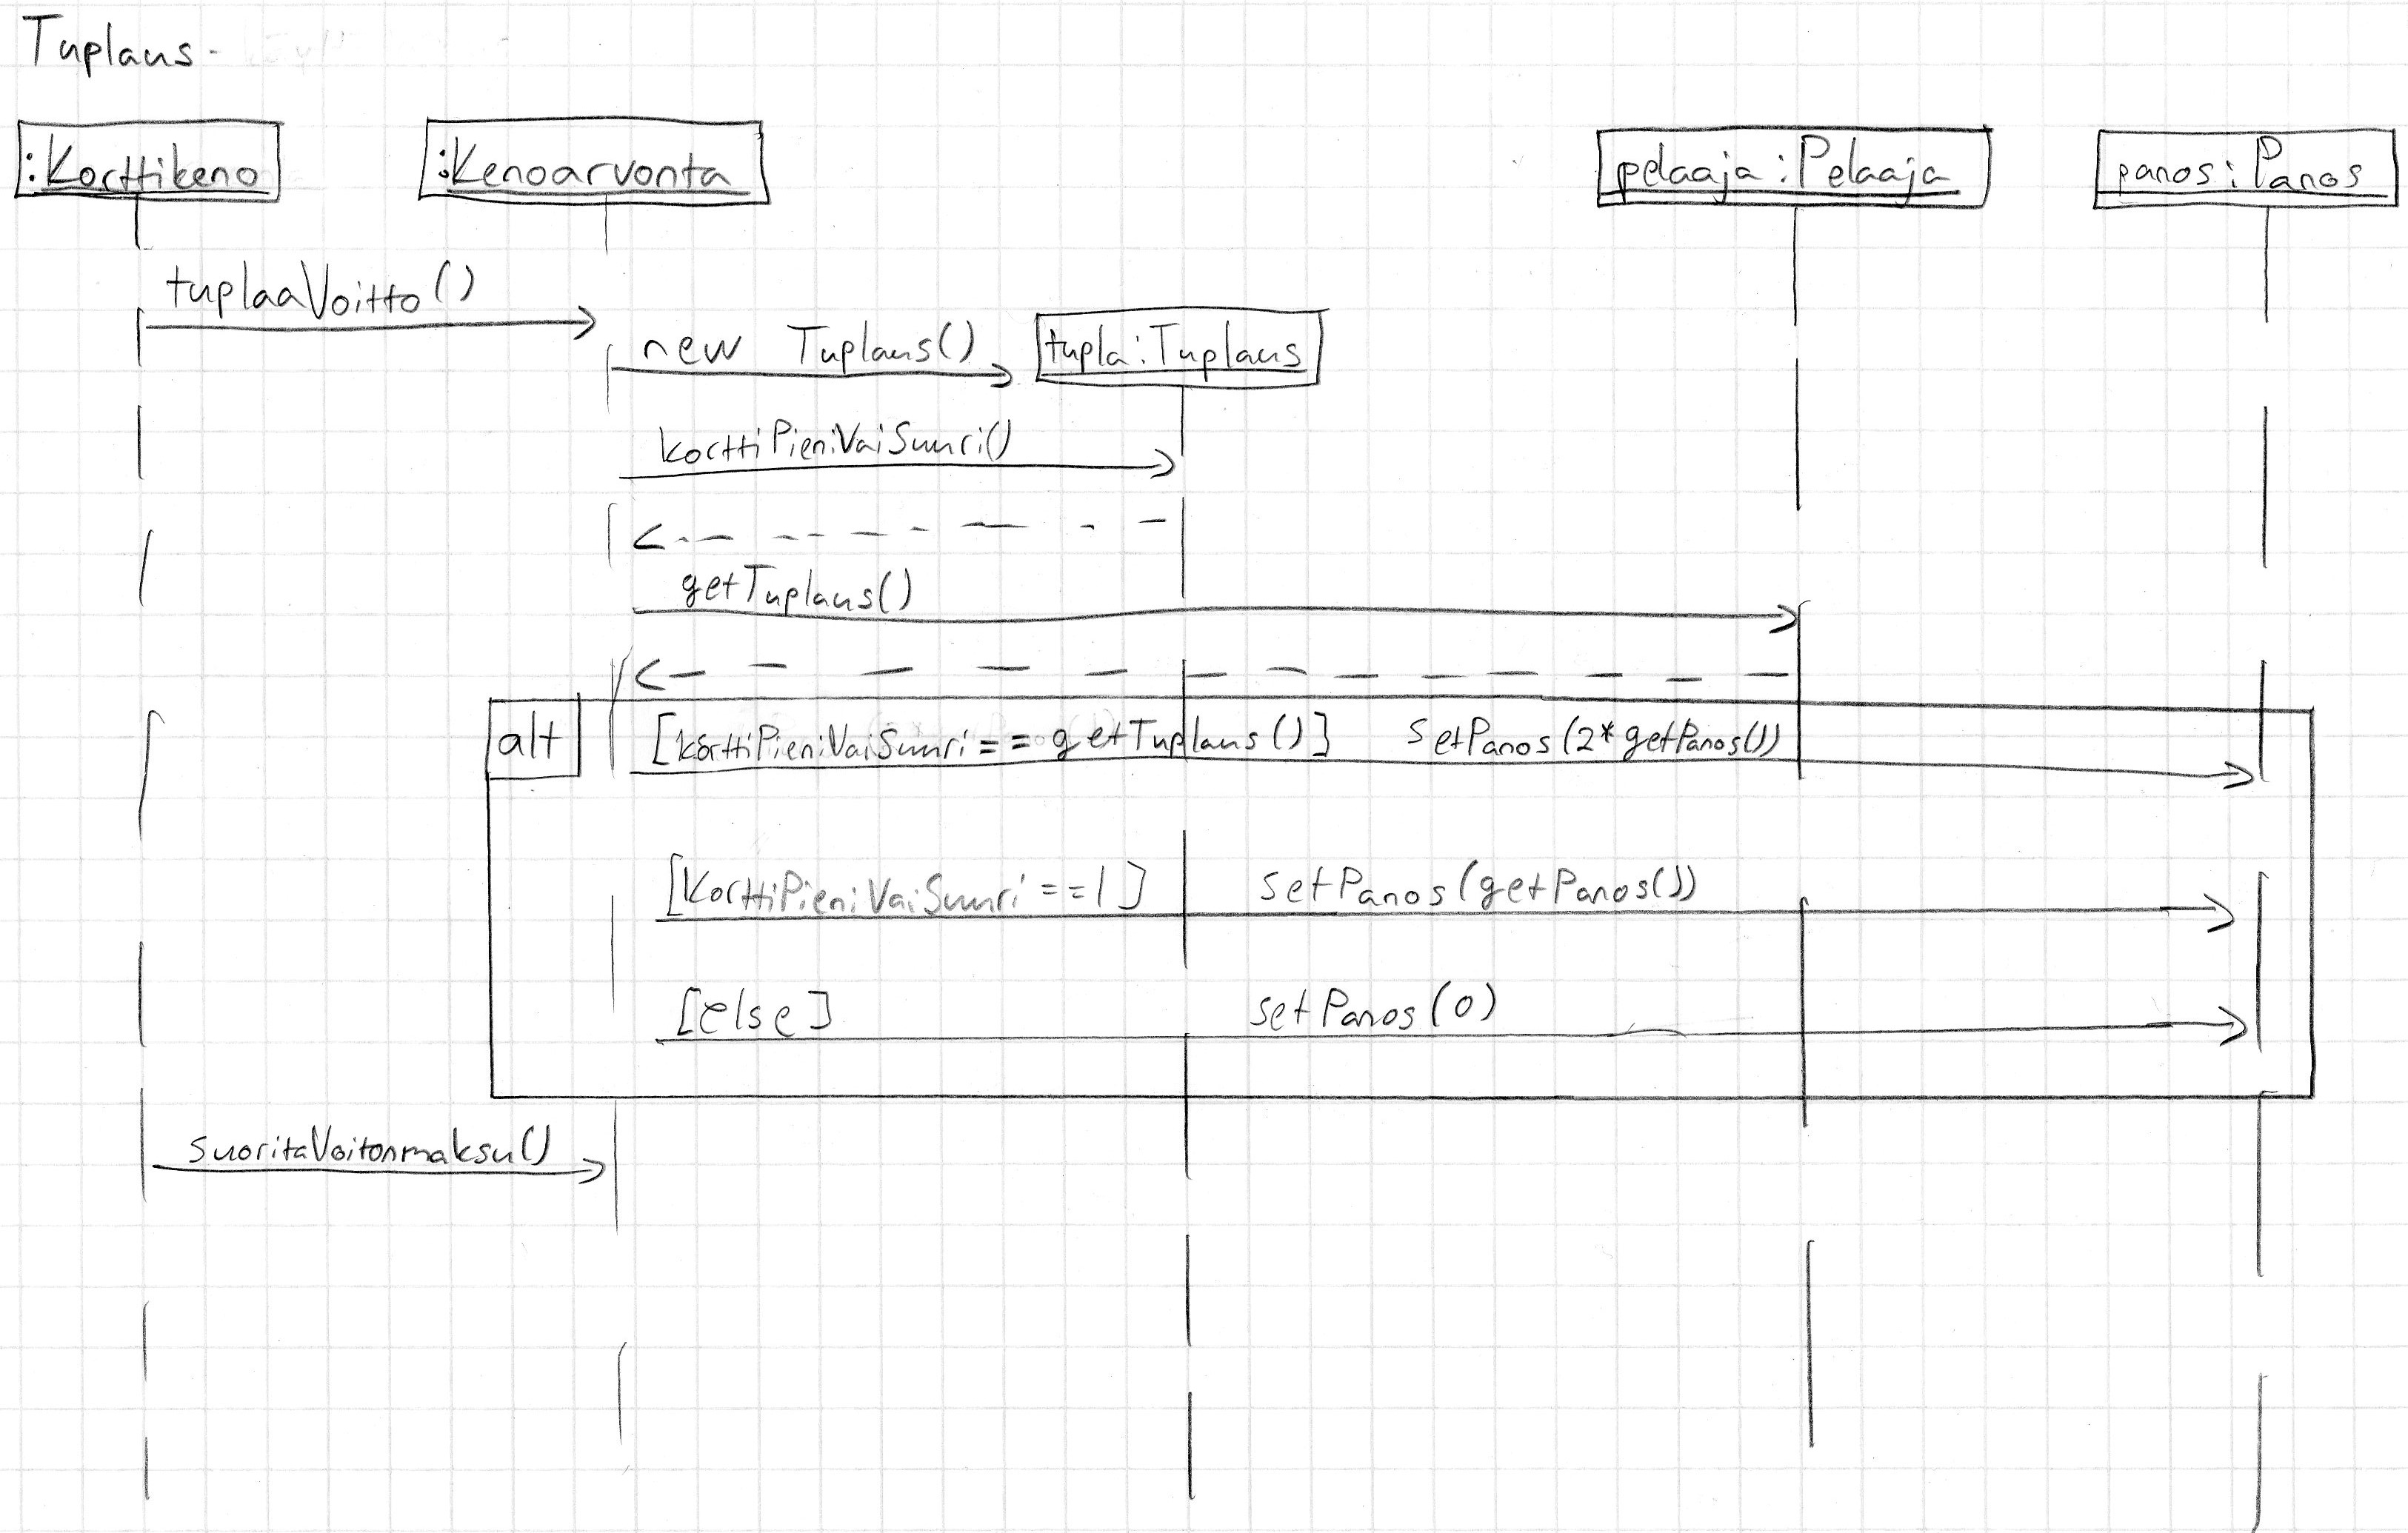 Tuplaus
:Korttikeno
:Kenoarvonta
pelaaja:Pelaaja
panos:Panos
tuplaaVoitto()
new Tuplaus()
tupla:Tuplaus
korttiPieniVaiSuuri()
getTuplaus()
alt
[korttiPieniVaiSuuri==getTuplaus()] setPanos(2*getPanos())
[KorttiPieniVaiSuuri==1] setPanos(getPanos())
[else] setPanos(0)
suoritaVoitonmaksu()